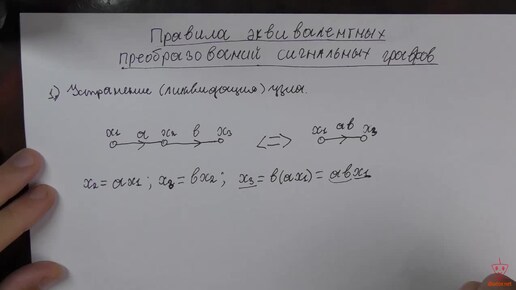 Правила эквивалентных
преобразований сигнальных графов
1) Устранение (ликвидация) узла.
x1 a x2 b x3 <=> x1 ab x3
x2 = ax1; x3 = bx2; x3 = b(ax1) = abx1